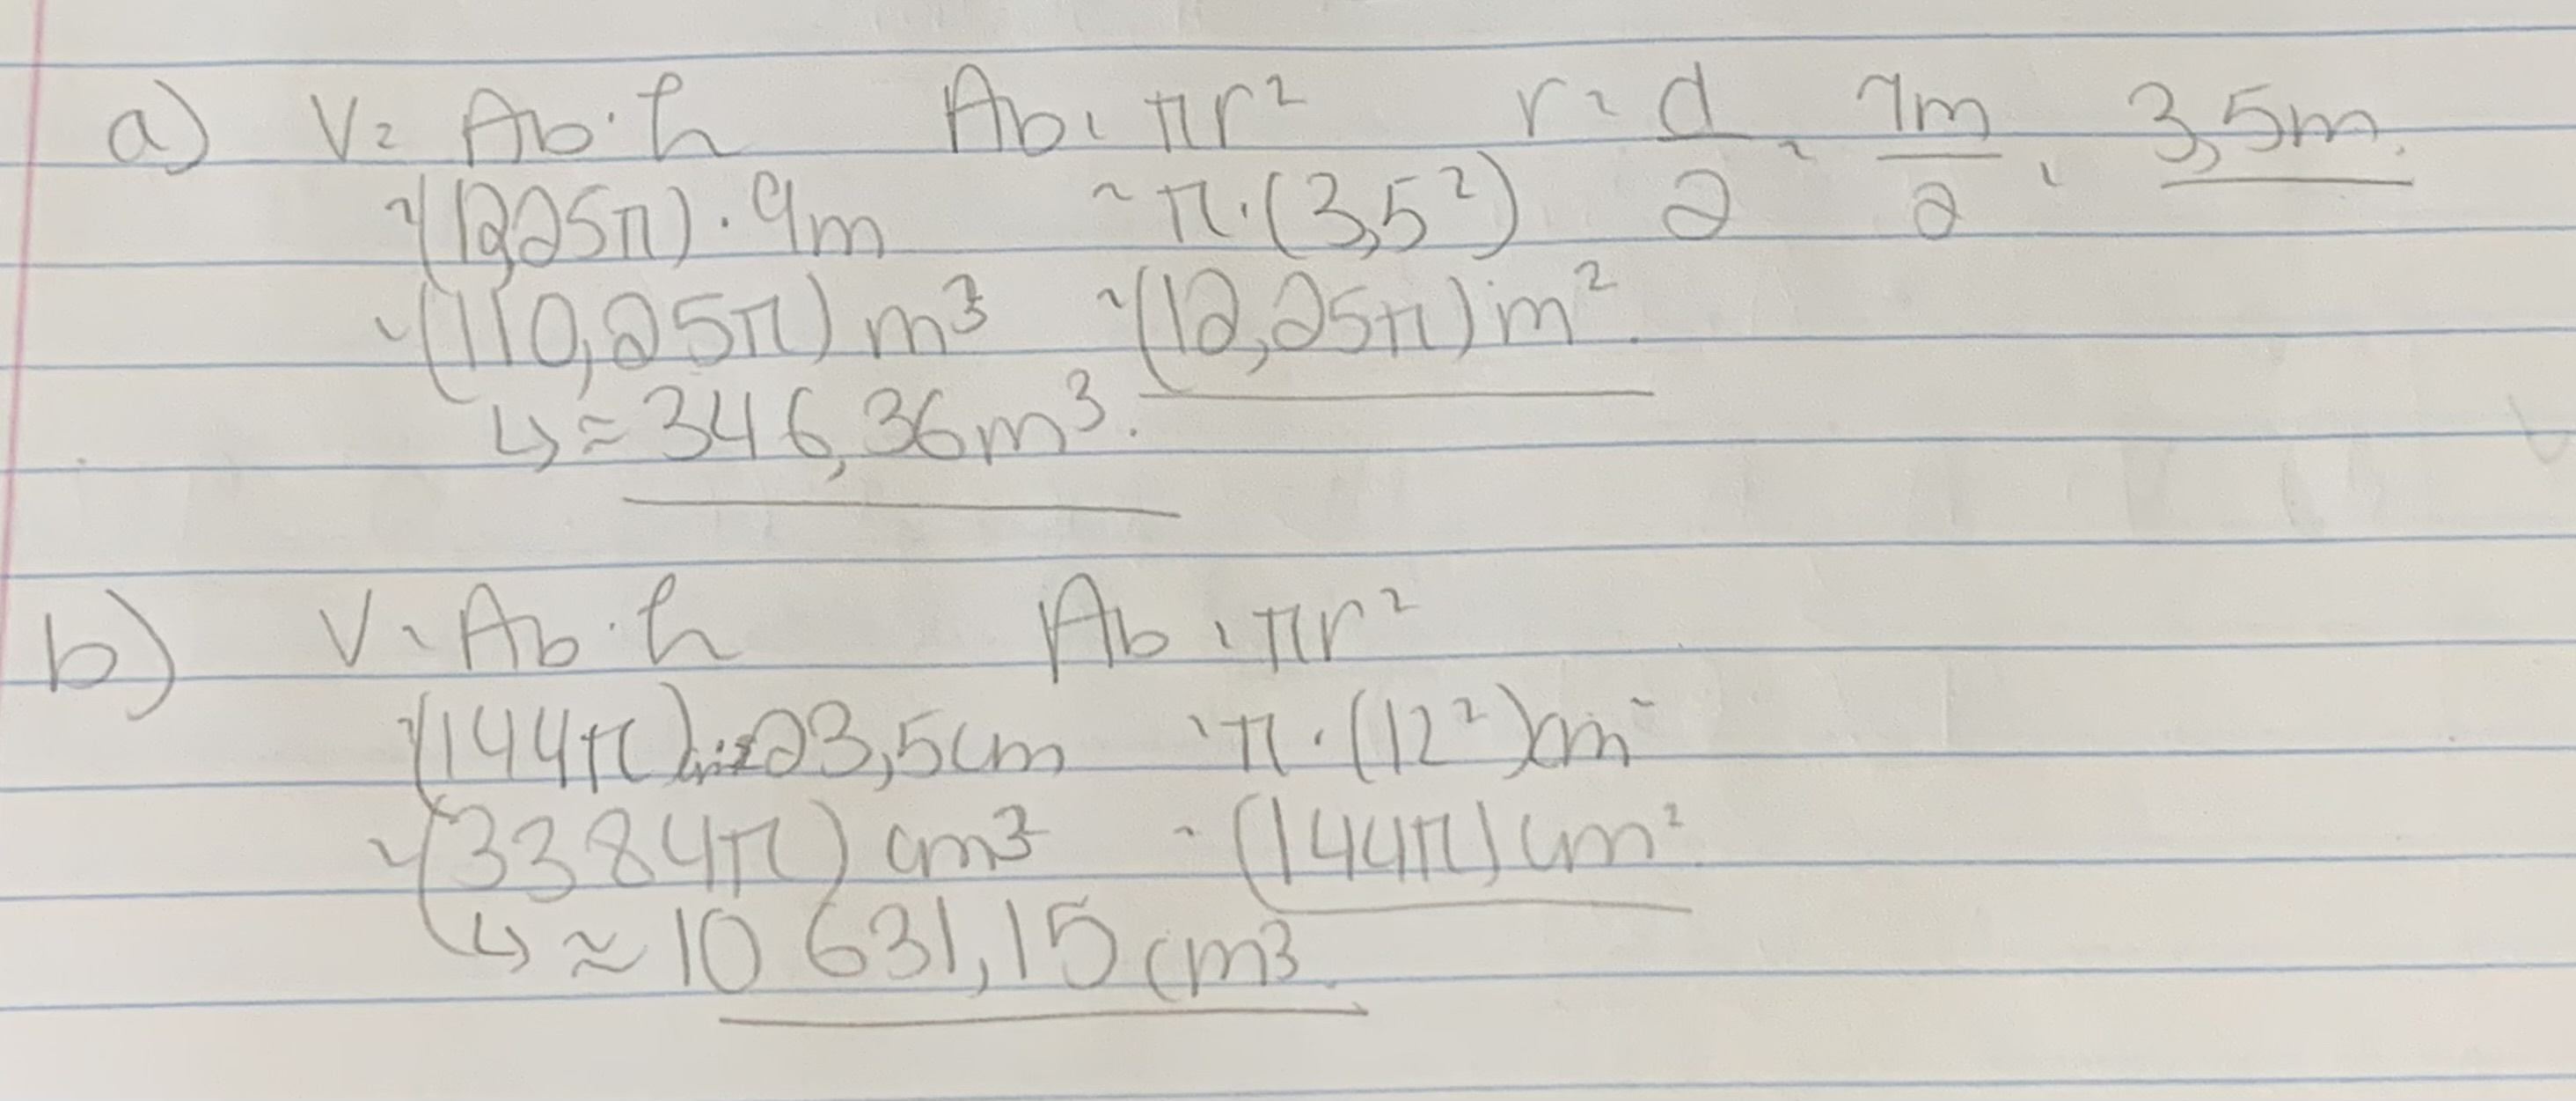 a) V = Ab · h Ab = πr² r = d/2 = 7m/2 = 3,5m.
= (12,25π) · 9m = π · (3,5²)
= (110,25π) m³ = (12,25π) m².
↳ ≈ 346,36 m³.
b) V = Ab · h Ab = πr²
= (144π) 23,5cm = π · (12²)cm²
= (3384π) cm³ = (144π) cm².
↳ ≈ 10 631,15 cm³.